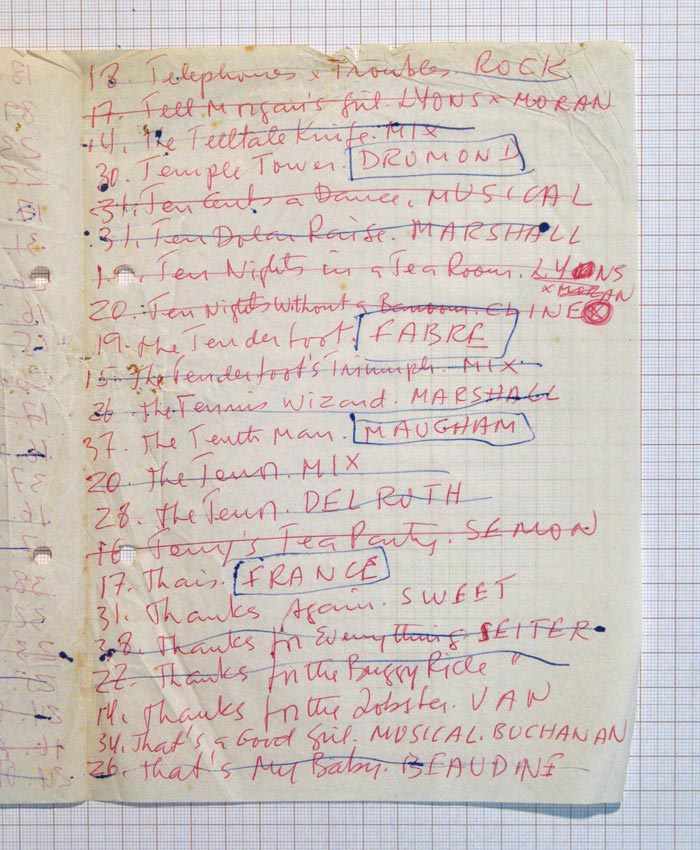 13. Telephones & Troubles. ROCK
17. Tell Morgan's Girl. LYONS × MORAN
14. The Telltale Knife. MIX
30. Temple Tower. DRUMOND
31. Ten Cents a Dance. MUSICAL
31. Ten Dolar Raise. MARSHALL
19. Ten Nights in a Tea Room. LYONS
× MORAN
20. Ten Nights Without a Barroom. CLINE
19. The Tenderfoot. FABRE
15. The Tenderfoot's Triumph. MIX
26. The Tennis Wizard. MARSHALL
37. The Tenth Man. MAUGHAM
20. The Terror. MIX
28. The Terror. DEL RUTH
16. Terry's Tea Party. SEMON
17. Thais. FRANCE
31. Thanks Again. SWEET
38. Thanks for Everything. SEITER
22. Thanks for the Buggy Ride "
14. Thanks for the Lobster. VAN
34. That's a Good Girl. MUSICAL. BUCHANAN
26. That's My Baby. BEAUDINE